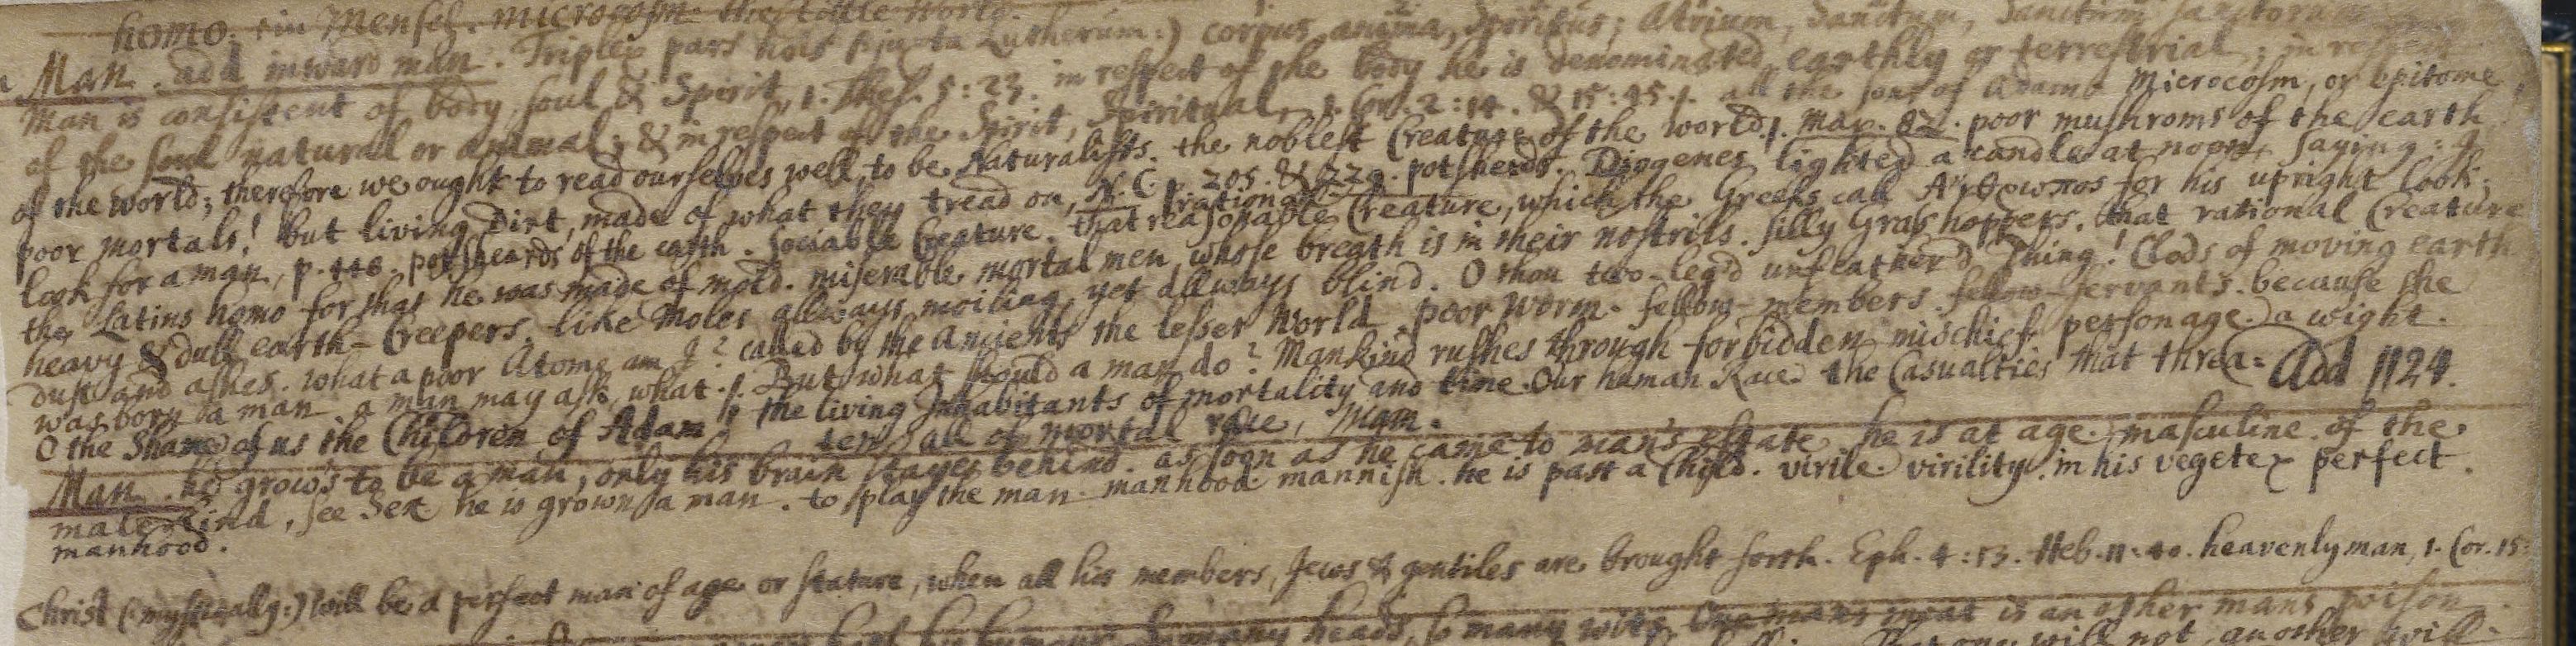 homo. ein Mensch. Microcosm the little World.
Man. add inward man. Triplex pars hois (juxta Lutherum:) corpus, anima, Spiritus; Atrium, Sanctum, Sanctum Sanctorum
Man is consistent of body, soul & Spirit, 1. Thes. 5:23. in respect of the body he is denominated earthly or terrestrial; in respect
of the soul natural or animal; & in respect of the Spirit, Spiritual, 1. Cor. 2:14. & 15:45. all the sons of Adam. Microcosm, or epitome
of the world; therefore we ought to read ourselves well, to be Naturalists. the noblest Creature of the world. poor mushroms of the earth
poor mortals! but living Dirt, made of what they tread on, N.C. p. 205. & 229. potsherds. Diogenes lighted a candle at noon, saying: I
look for a man, p. 448. potsheards of the earth. sociable Creature. that reasonable rational Creature, which the Greeks call for his upright look;
the Latins homo for that he was made of mold. miserable mortal men whose breath is in their nostrils. silly Grashoppers. that rational Creature
heavy & dull earth-Creepers. like Moles allways moiling, yet allways blind. O thou two-leg'd unfeather'd Thing! Clods of moving earth
dust and ashes. what a poor Atome am I? called by the Ancients the lesser World. poor worm. fellow-members. fellow-servants. because she
was born a man. a man may ask, what. But what should a man do? Mankind rushes through forbidden mischief. personage. a wight.
O the Shame of us the Children of Adam the living Inhabitants of mortality and time. Our human Race. the Casualties that threa= Add 1124.
ten all of mortal race, Man.
Man. he grow's to be a man, only his brain stayes behind. as soon as he came to man's estate. he is at age. masculine. of the
male kind, see Sex. he is grown a man. to play the man. manhood. mannish. he is past a Child. virile. virility. in his vegete perfect
manhood.
Christ (mystically:) will be a perfect man of age or stature, when all his members, Jews & gentiles are brought forth. Eph. 4:13. Heb. 11:40. heavenly man, 1. Cor. 15:
many heads, so many wits. One mans meat is another mans poison.
will not, another will.